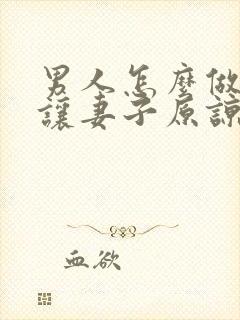 男人怎麼做
讓妻子原諒
血欲